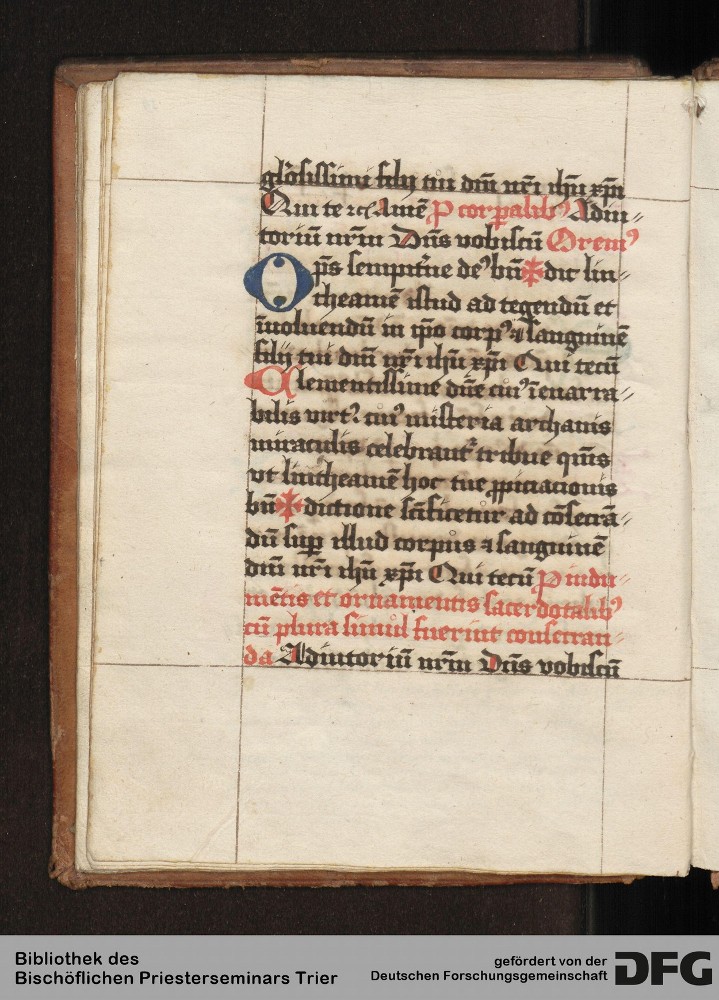 gl'osissimi filij tui dm̄ nr̄i ihū xp̄m
Qui te ⁊cͣ Amē P corꝑalibꝰ Adiu⸗
toriū nrm̄ Dn̄s vobiscū Oremꝰ
Op̄s sempit'ne deꝰ bn̄ ✠ dic lin⸗
theamē istud ad tegendū et
īuoluendū in ip̄o corpꝰ ⁊ sanguinē
filij tui dm̄ nr̄i ihū xp̄i Qui tecū
Clementissime dn̄e cuiꝰ īenarra⸗
bilis virtꝰ cuiꝰ misteria archanis
miraculis celebrant᷑ tribue qm̄s
vt lintheamē hoc tue ꝓpiciacionis
bn̄ ✠ dictione sc̄ificetur ad cōsecrā⸗
dū suꝑ illud corpus ⁊ sanguinē
dm̄ nr̄i ihū xp̄i Qui tecū P indu⸗
mētis et ornamentis sacerdotalibꝰ
cū plura simul fuerint consecran⸗
da Adiutoriū nrm̄ Dn̄s vobiscū
Bibliothek des
Bischöflichen Priesterseminars Trier
gefördert von der
Deutschen Forschungsgemeinschaft
DFG